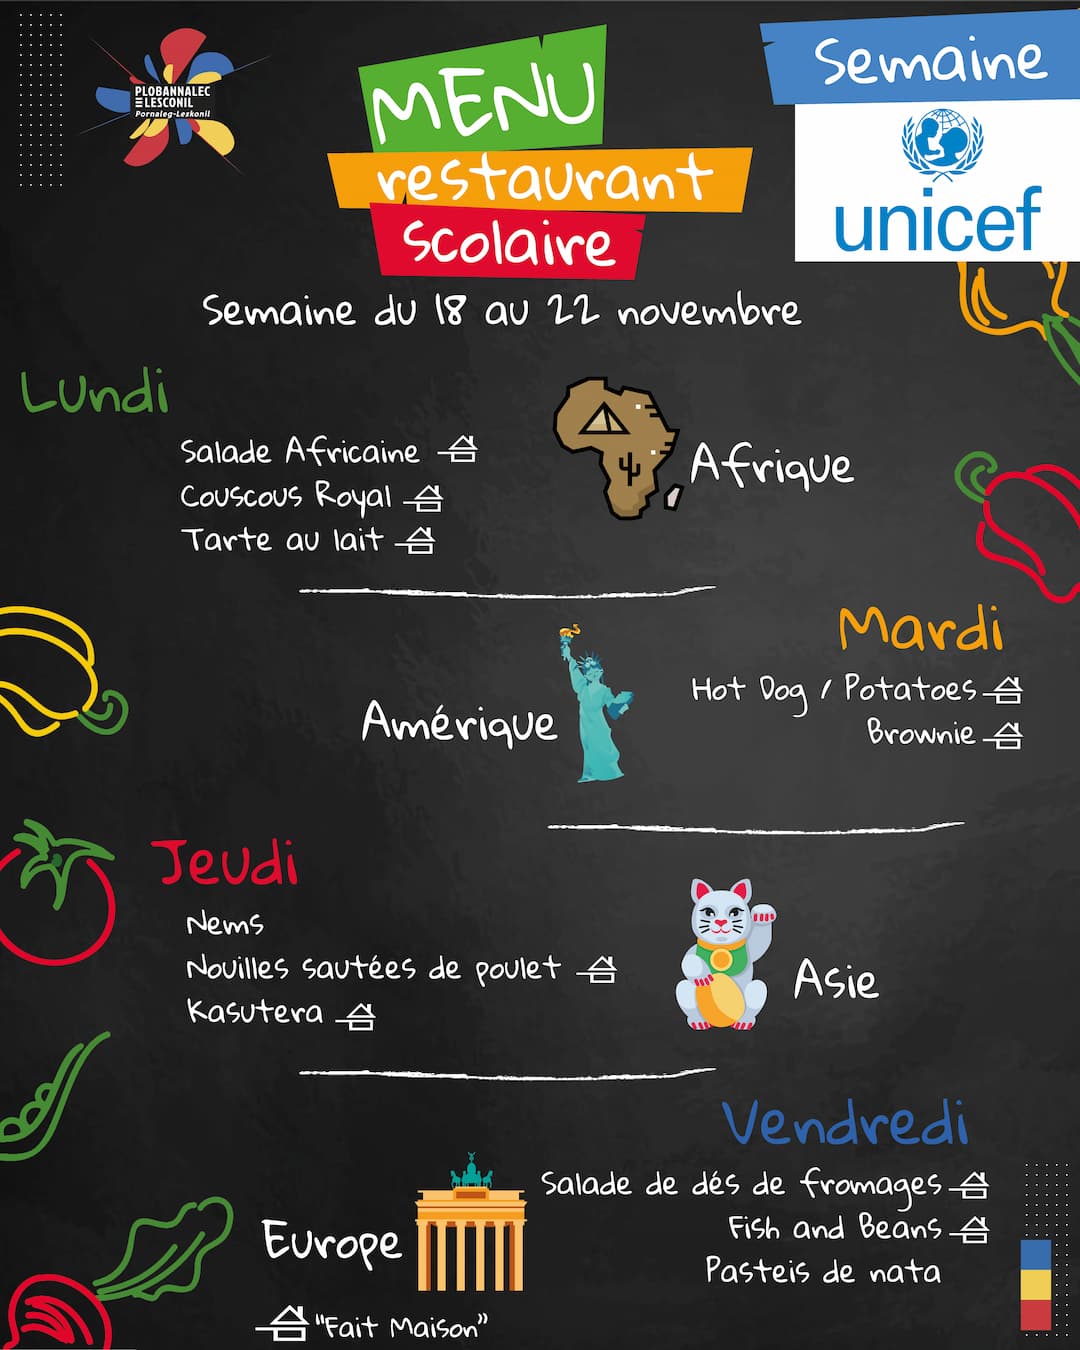 PLOBANNALEC
LESCONIL
Pornaleg-Leskonil
MENU
restaurant
scolaire
Semaine
unicef
Semaine du 18 au 22 novembre
Lundi
Salade Africaine
Couscous Royal
Tarte au lait
Afrique
Mardi
Hot Dog / Potatoes
Brownie
Amérique
Jeudi
Nems
Nouilles sautées de poulet
Kasutera
Asie
Vendredi
Salade de dés de fromages
Fish and Beans
Pasteis de nata
Europe
"Fait Maison"